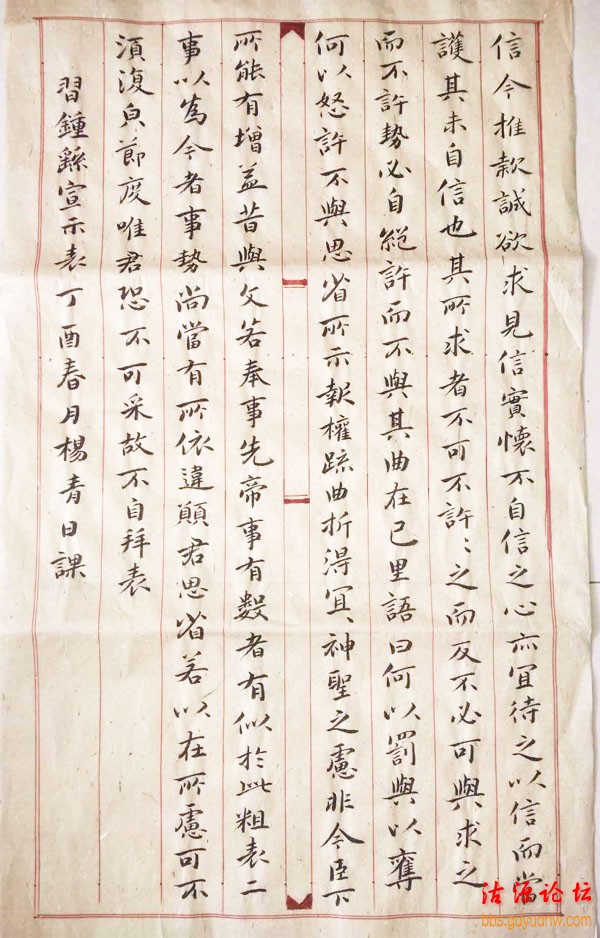 信今推款誠欲求見信實懷不自信之心亦宜待之以信而當
護其未自信也其所求者不可不許〻之而反不必可與求之
而不許勢必自絕許而不與其曲在己里語曰何以罰與以奪
何以怒許不與思省所示報權疏曲折得宜〻神聖之慮非今臣下
所能有增益昔與文若奉事先帝事有數者有似於此粗表二
事以為今者事勢尚當有所依違願君思省若以在所慮可不
須復皃節度唯君恐不可采故不自拜表
習鍾繇宣示表丁酉春月楊青日課
沽源论坛
bbs.guyuanw.com